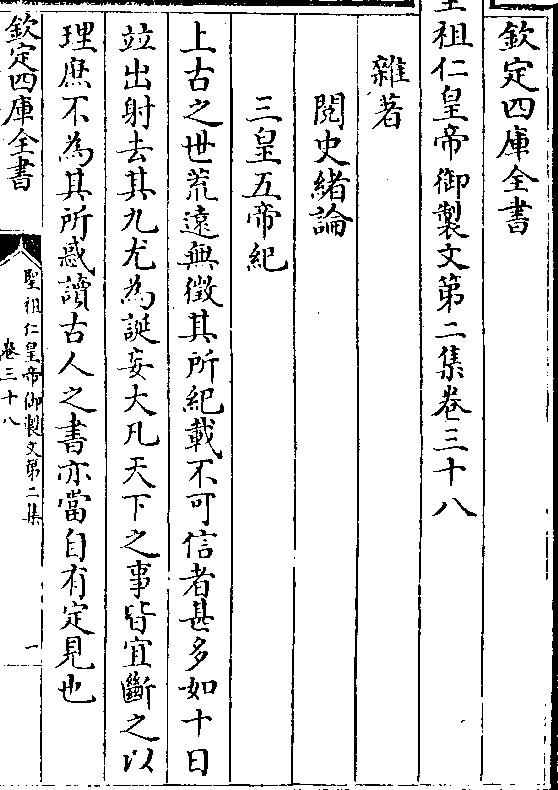 欽定四庫全書
聖祖仁皇帝御製文第二集卷三十八
雜著
閱史緒論
三皇五帝紀
上古之世荒遠無徵其所紀載不可信者甚多如十日
竝出射去其九尤為誕妄大凡天下之事皆宜斷之以
理庶不為其所惑讀古人之書亦當自有定見也
欽定四庫全書
聖祖仁皇帝御製文第二集
卷三十八
一